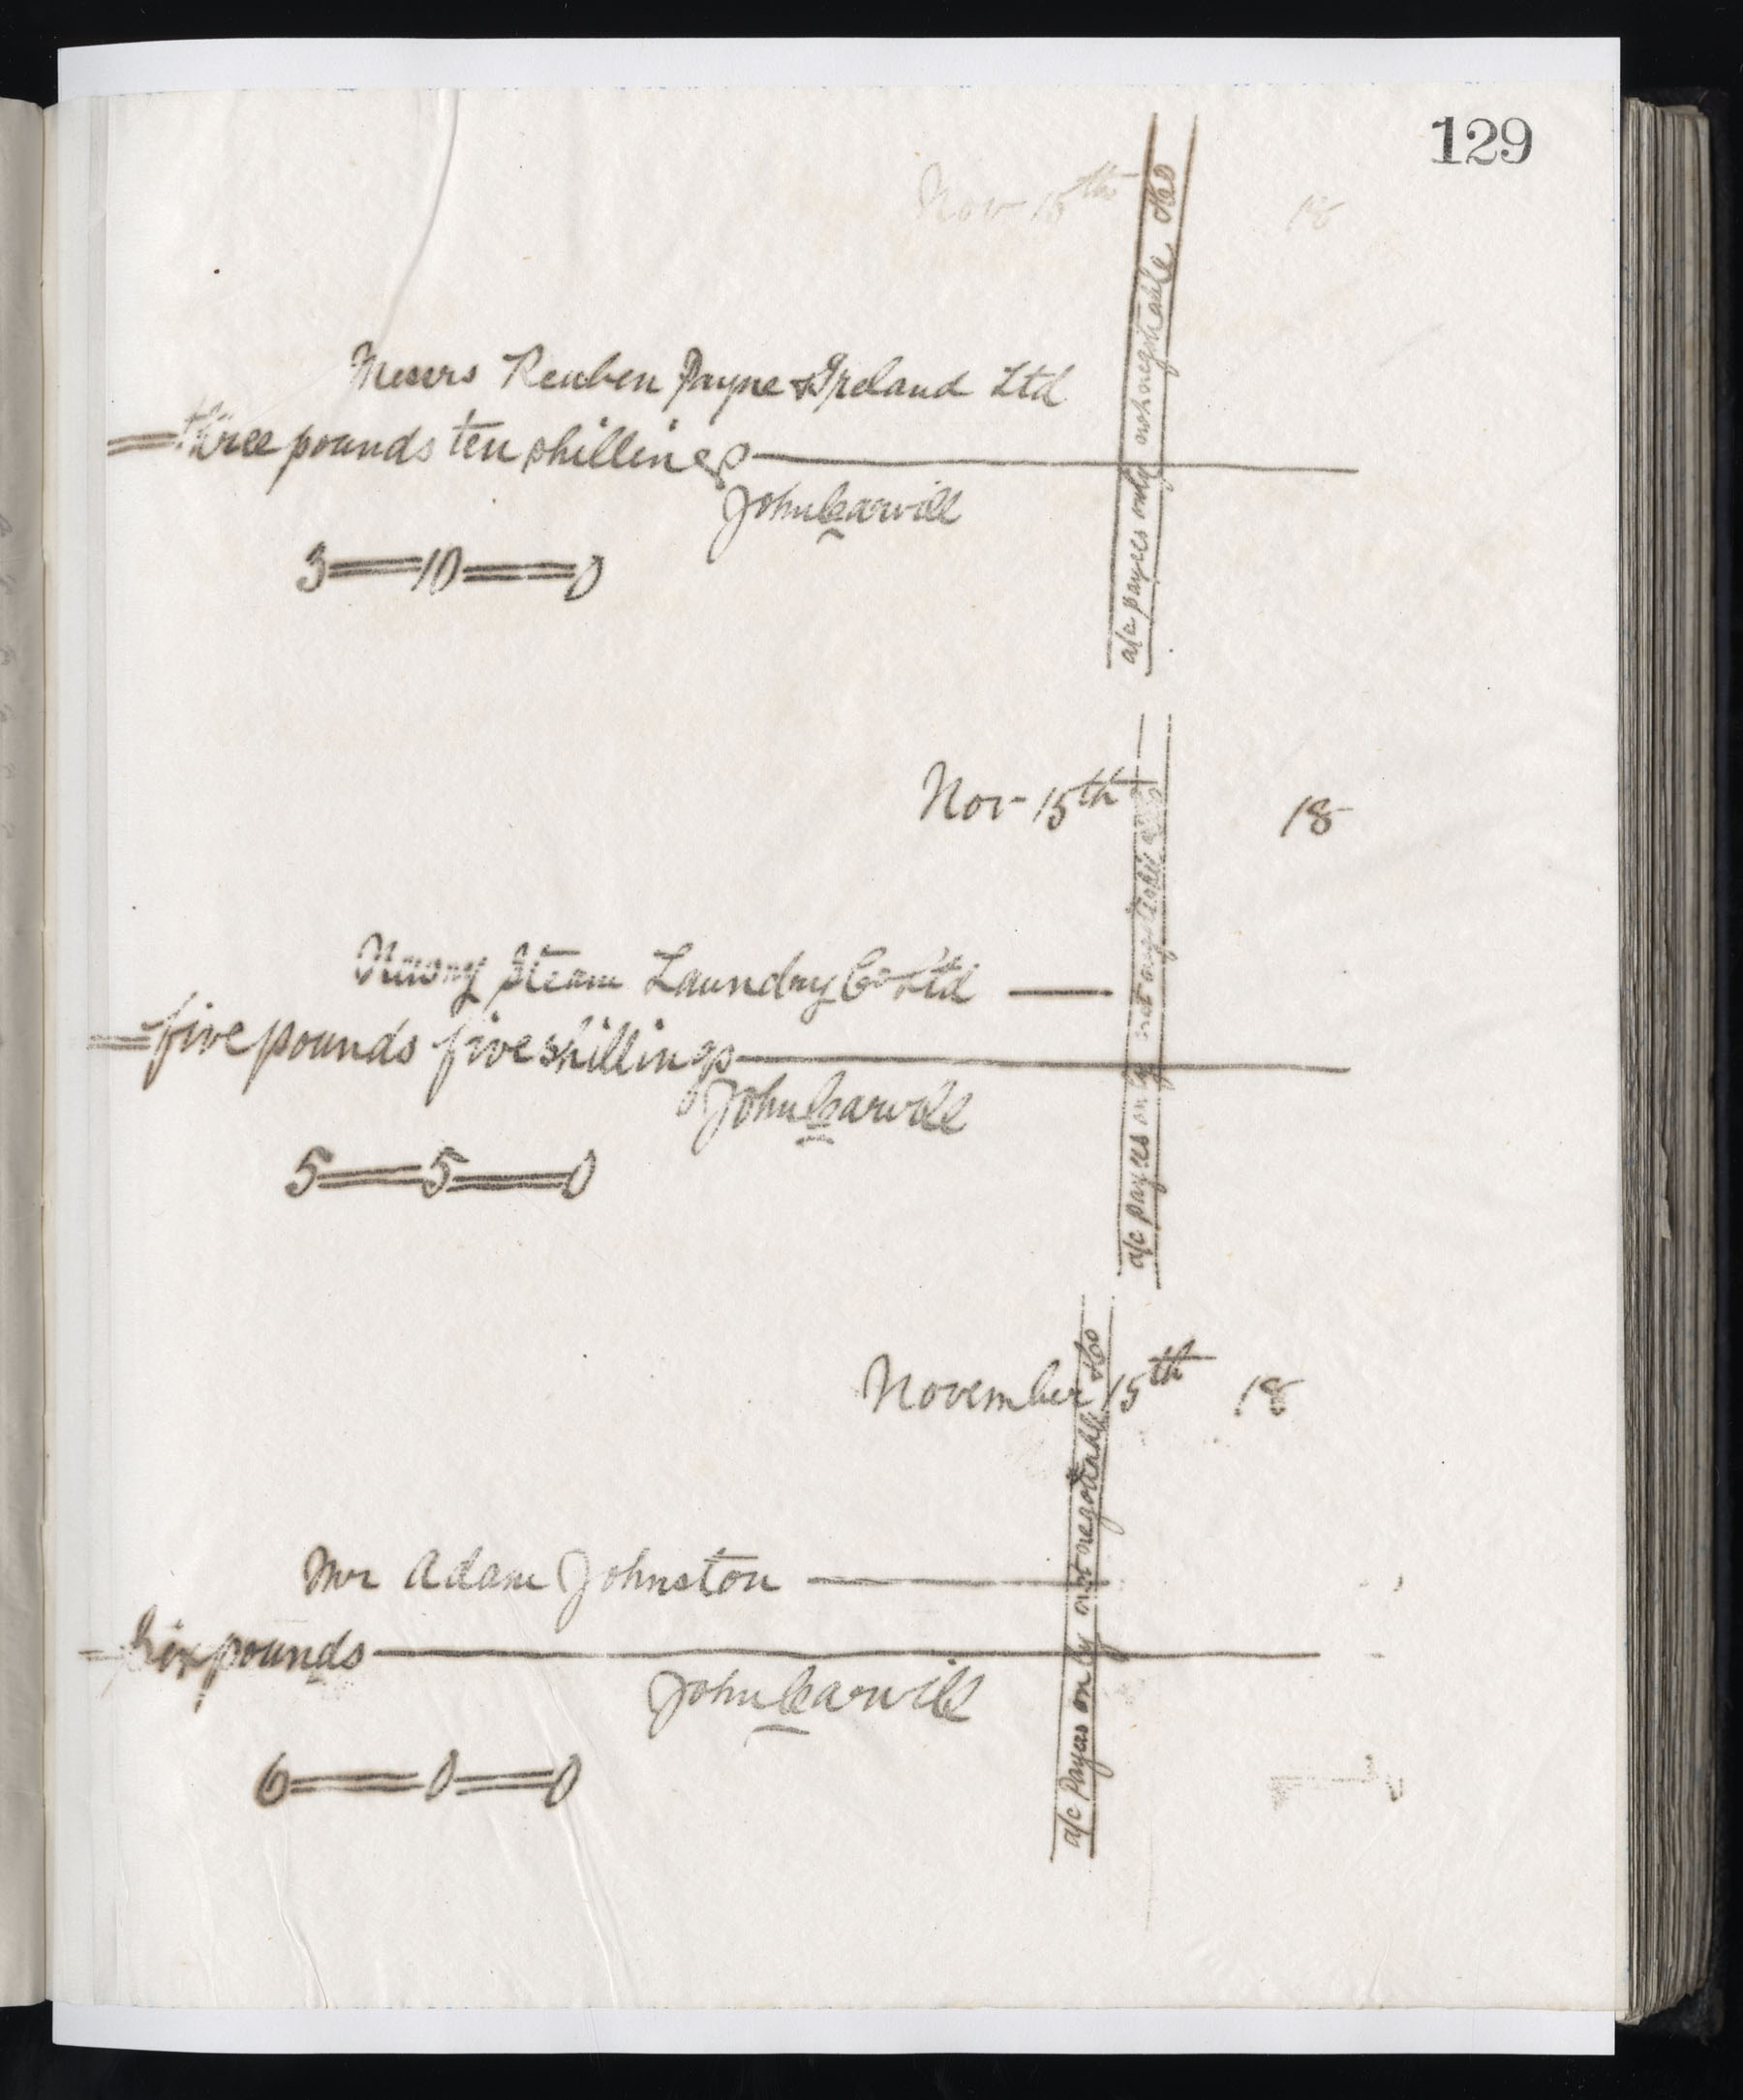 129
Nov 15th 18
Messrs Reuben Payne & Ireland Ltd
three pounds ten shillings
John Carvill
3 = 10 = 0
a/c payees only not negotiable &Co
Nov 15th 18
Newry Steam Laundry Co Ltd
five pounds five shillings
John Carvill
5 = 5 = 0
a/c payees only not negotiable &Co
November 15th 18
Mr Adam Johnston
Six pounds
John Carvill
6 = 0 = 0
a/c Payees only not negotiable &Co